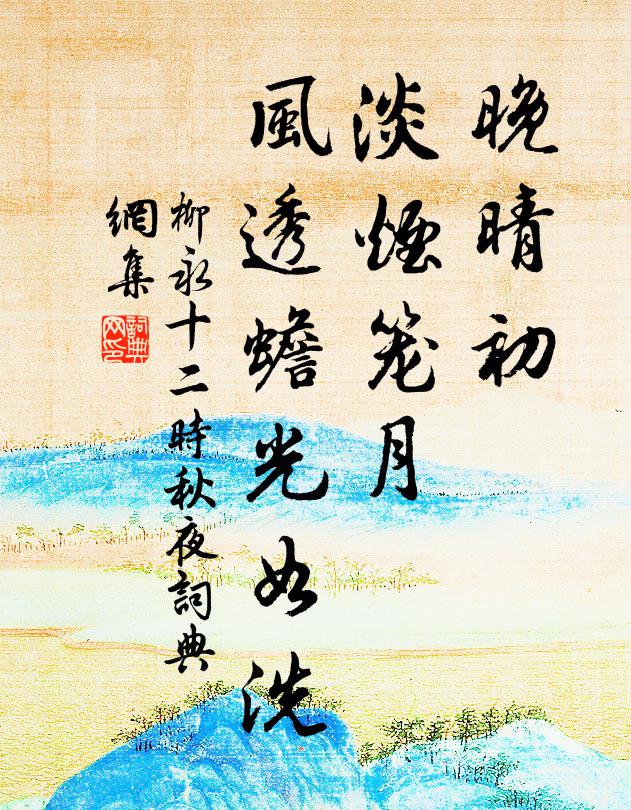 晚晴初
淡煙笼月
風透蟾光如洗
柳永十二時秋夜詞典
網集
詞典
网印